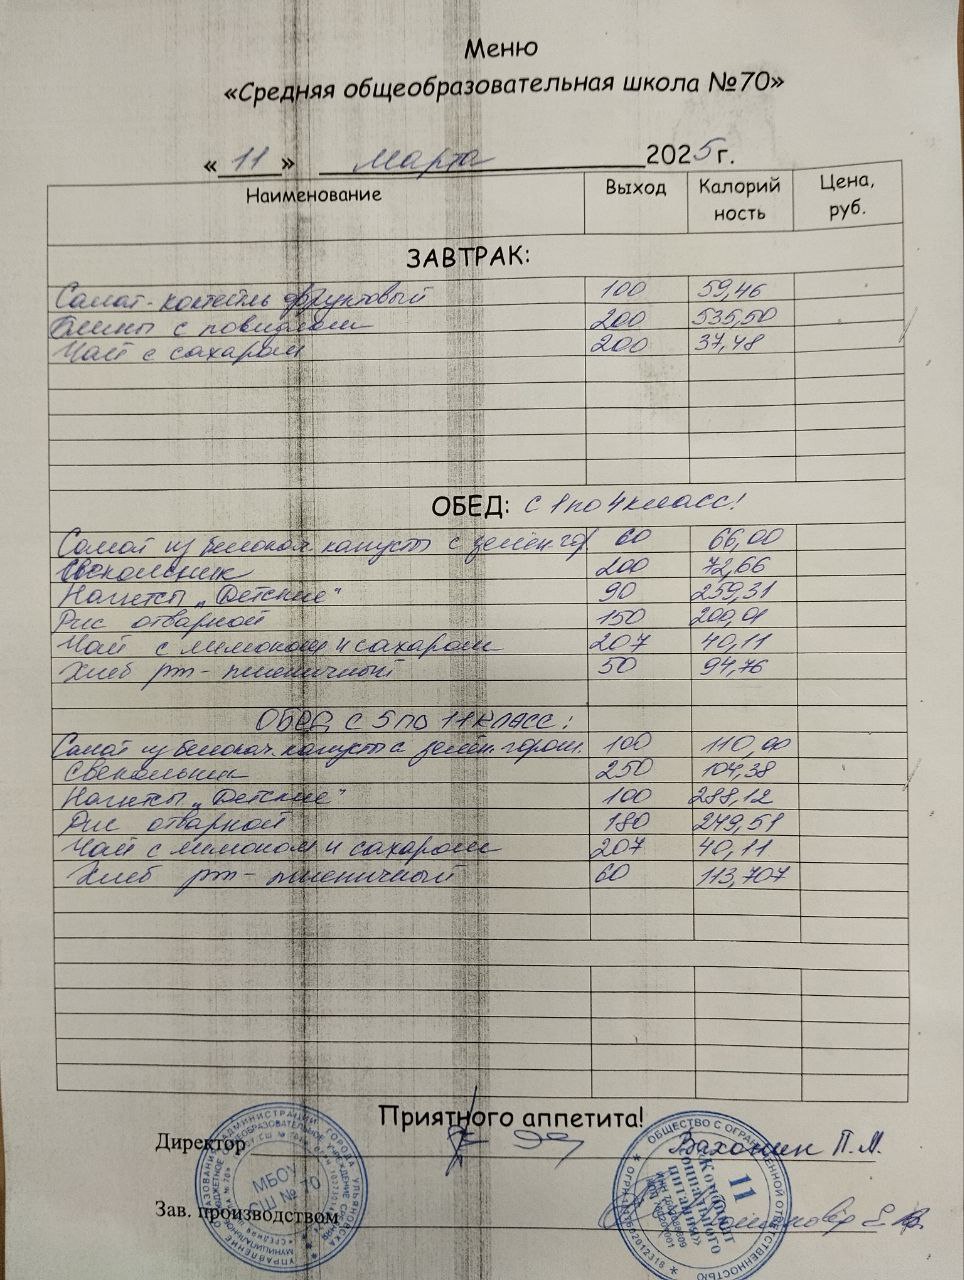 Меню
«Средняя общеобразовательная школа №70»
« 11 » Марта 2025 г.
Наименование Выход Калорий ность Цена, руб.
ЗАВТРАК:
Салат-коктейль фруктовый 100 59,46
Блины с повидлом 200 535,50
Чай с сахаром 200 37,48
ОБЕД: с 1 по 4 класс!
Салат из белокач. капусты с зелён. гор. 60 66,00
Свекольник 200 72,66
Нагетсы „Детские" 90 259,31
Рис отварной 150 200,01
Чай с лимоном и сахаром 207 40,11
Хлеб рж-пшеничный 50 94,76
ОБЕД С 5 ПО 11 КЛАСС:
Салат из белокач. капусты с зелён. горош. 100 110,00
Свекольник 250 104,38
Нагетсы „Детские" 100 288,12
Рис отварной 180 249,51
Чай с лимоном и сахаром 207 40,11
Хлеб рж-пшеничный 60 113,707
Приятного аппетита!
Директор Вахонин П.М.
Зав. производством
МБОУ
СШ № 70
11
«Комбинат
питания»